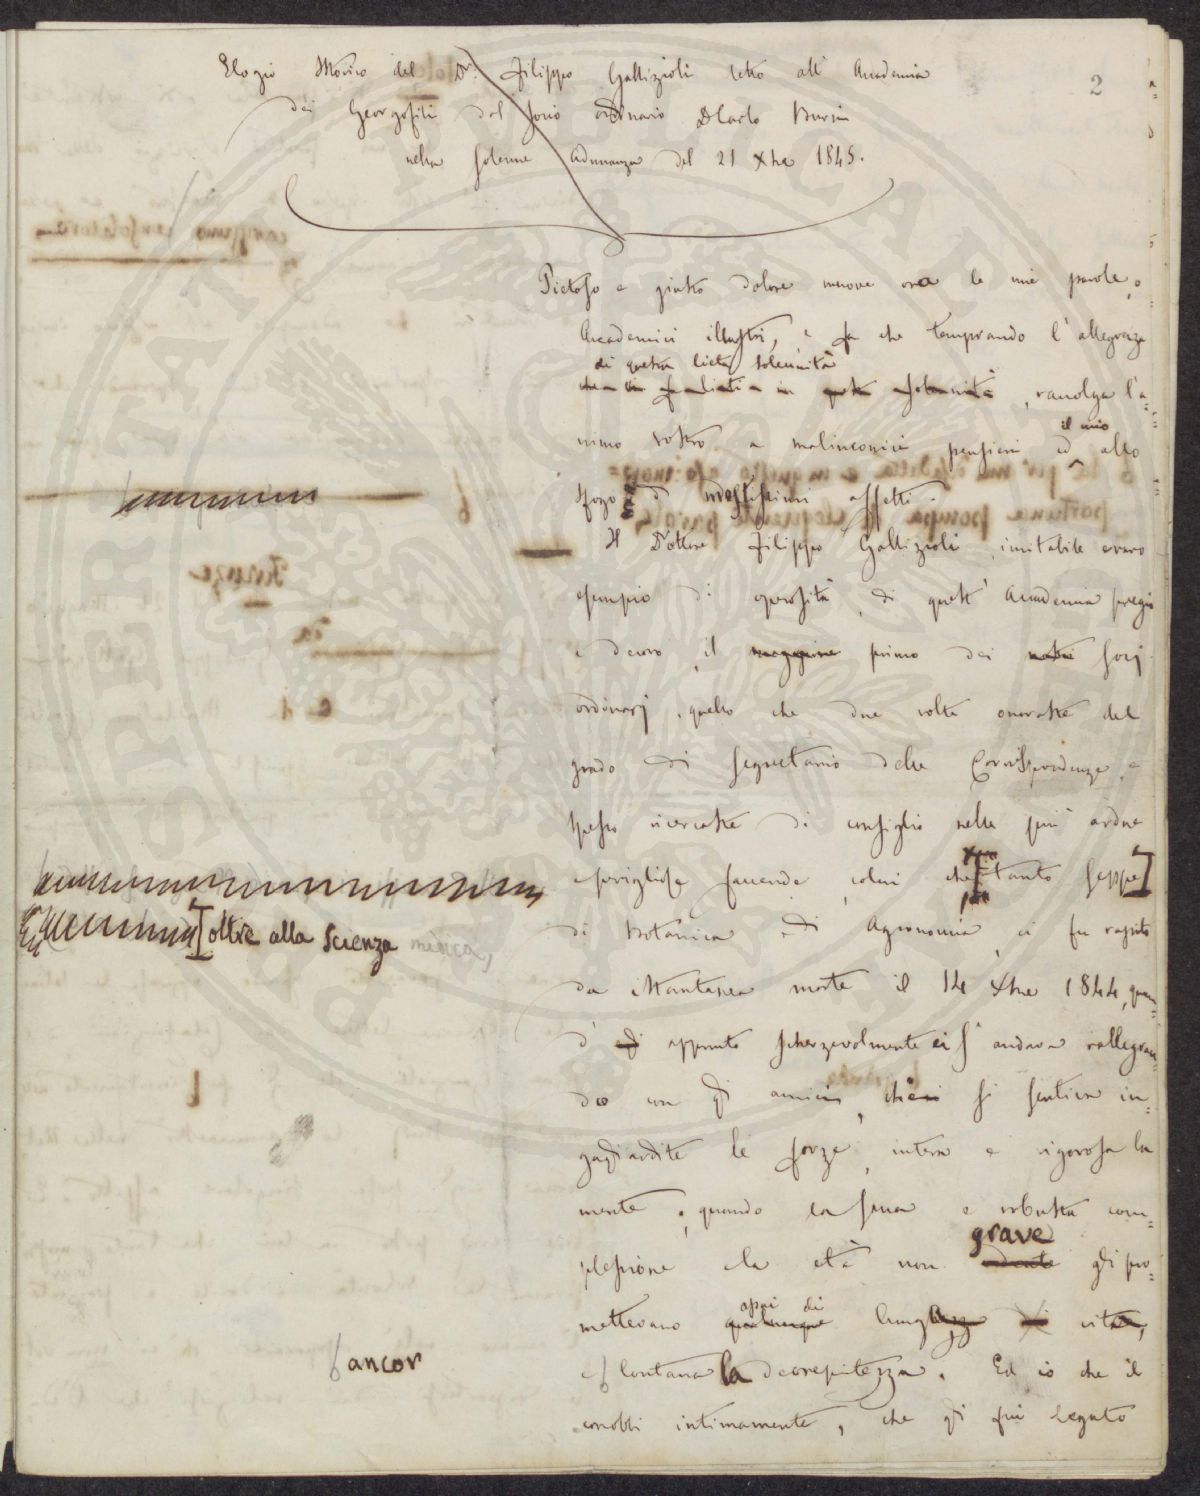 2
Elogio Storico del Dr. Filippo Gallizioli letto all'Accademia
dei Georgofili dal socio ordinario D Carlo
nella solenne adunanza del 21 Xbre 1845.
Pietoso e giusto dolore muove ora le mie parole, o
Accademici illustri, e fa che temprando l'allegrezza
di questa lieta solennità
in questa solennità, ravvolga l'a=
nimo vostro a malinconici pensieri ed
il mio
allo
sfogo di mestissimi affetti.
Il Dottore Filippo Gallizioli imitabile e raro
esempio di operosità, di quest'Accademia pregio
e decoro, il maggiore primo dei nostri socj
ordinarj, quello che due volte onoraste del
grado di segretario delle Corrispondenze, e
spesso ricercaste di consiglio nelle più ardue
e perigliose faccende, colui che [tanto seppe]
[oltre alla scienza medica,
di Botanica e di Agronomia, ci fu rapito
da istantanea morte il 14 Xbre 1844, quan=
d' appunto scherzevolmente ei s'andava rallegran=
do con gli amici, che si sentiva in=
gagliardite le forze, intera e vigorosa la
mente; quando la sana e robusta com=
plessione e la età non
grave
gli pro=
mettevano
assai di
qualunque lunghezza di vita,
ancor
e lontana la decrepitezza. Ed io che il
conobbi intimamente, che gli fui legato